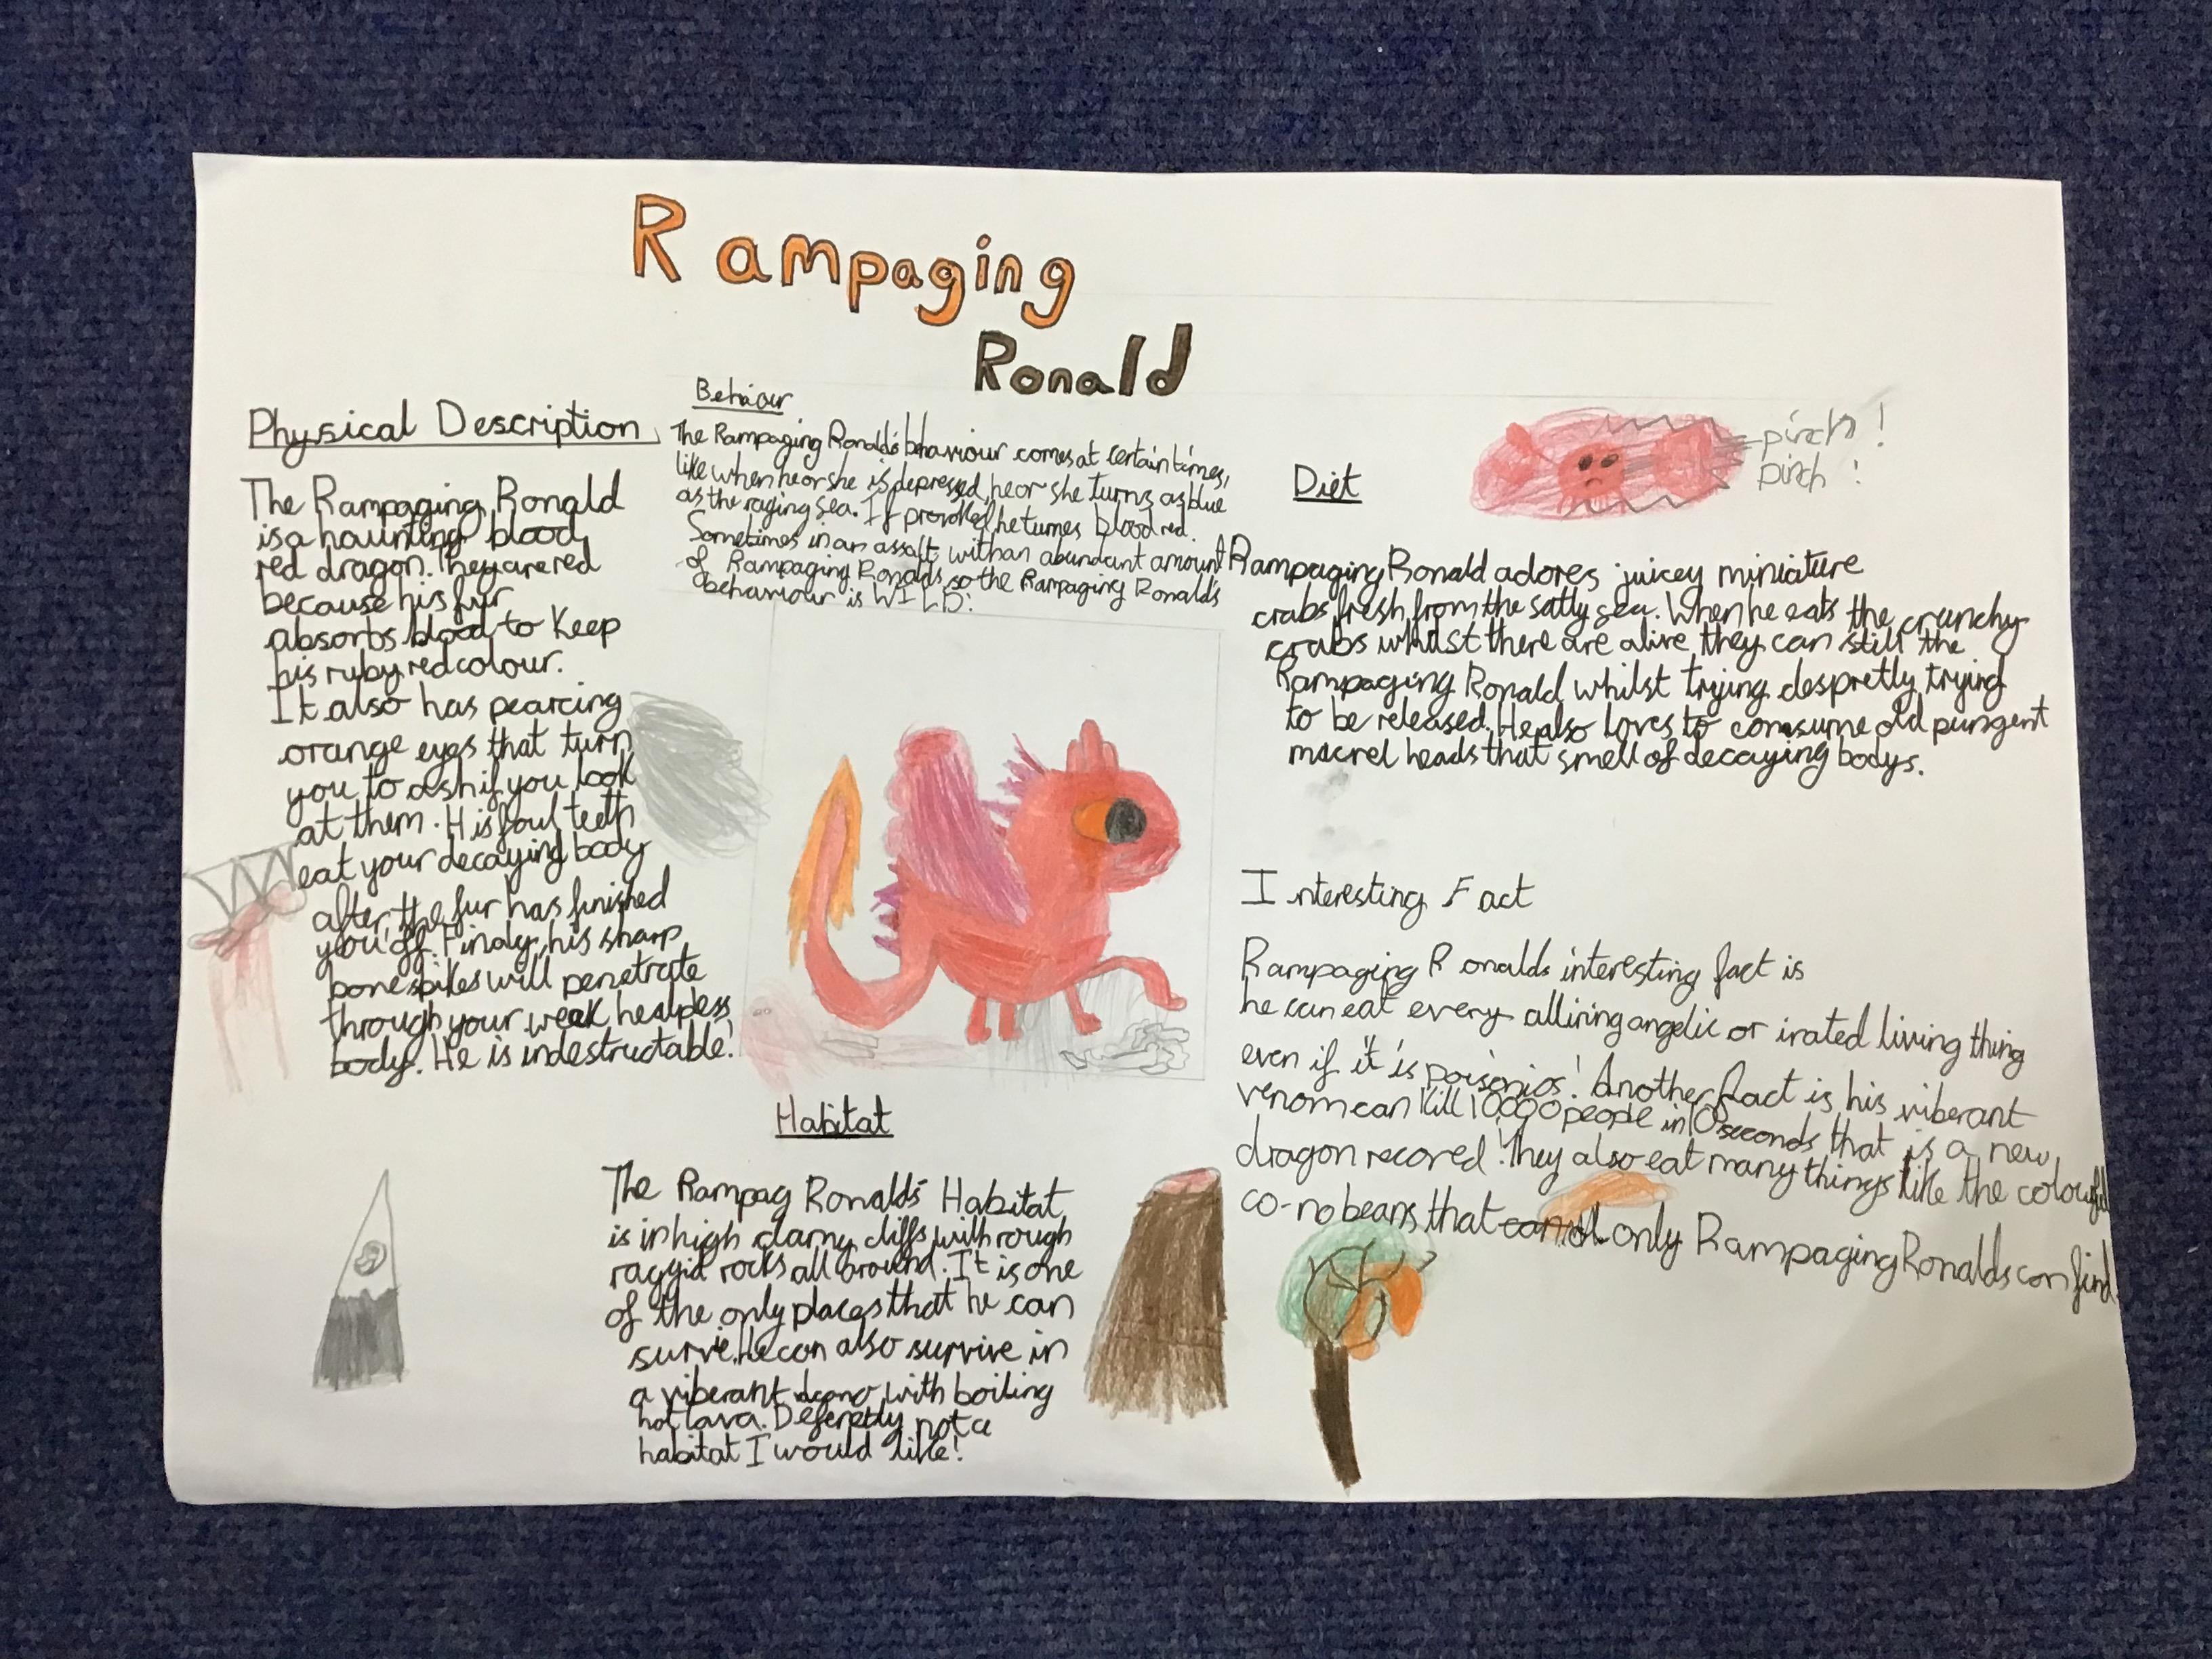 Rampaging
Ronald
Physical Description
The Rampaging Ronald
is a haunting blood
red dragon. They are red
because his fur
absorbs blood to keep
his ruby red colour.
It also has pearcing
orange eyes that turn
you to ash if you look
at them. His foul teeth
eat your decaying body
after the fur has finished
you off. Finaly, his sharp
bone spikes will penetrate
through your weak healpless
body. He is indestructable!
Behaiour
The Rampaging Ronald's behaviour comes at certain times,
like when he or she is depressed, he or she turns as blue
as the raging sea. If provolked, he turnes blood red.
Sometimes in an assalt with an abundant amount
of Rampaging Ronalds, so the Rampaging Ronald's
behaviour is WILD!
Diet
pinch!
pinch!
Rampaging Ronald adores juicey miniature
crabs fresh from the satly sea. When he eats the crunchy
crabs whilst there are alive they can still the
Rampaging Ronald whilst trying despretly trying
to be released. He also loves to comsume old pungent
macrel heads that smell of decaying bodys.
Interesting Fact
Rampaging Ronalds interesting fact is
he can eat every alliring angelic or irated living thing
even if it is poisonios! Another fact is his viberant
venom can kill 10,000 people in 10 seconds that is a new
dragon recored! They also eat many things like the colourful
co-no beans that only Rampaging Ronalds can find.
Habitat
The Rampag Ronald's Habitat
is in high damy cliffs with rough
raggid rocks all around. It is one
of the only places that he can
survie. He can also survive in
a viberant with boiling
hot lava. Deferetly not a
habitat I would like!